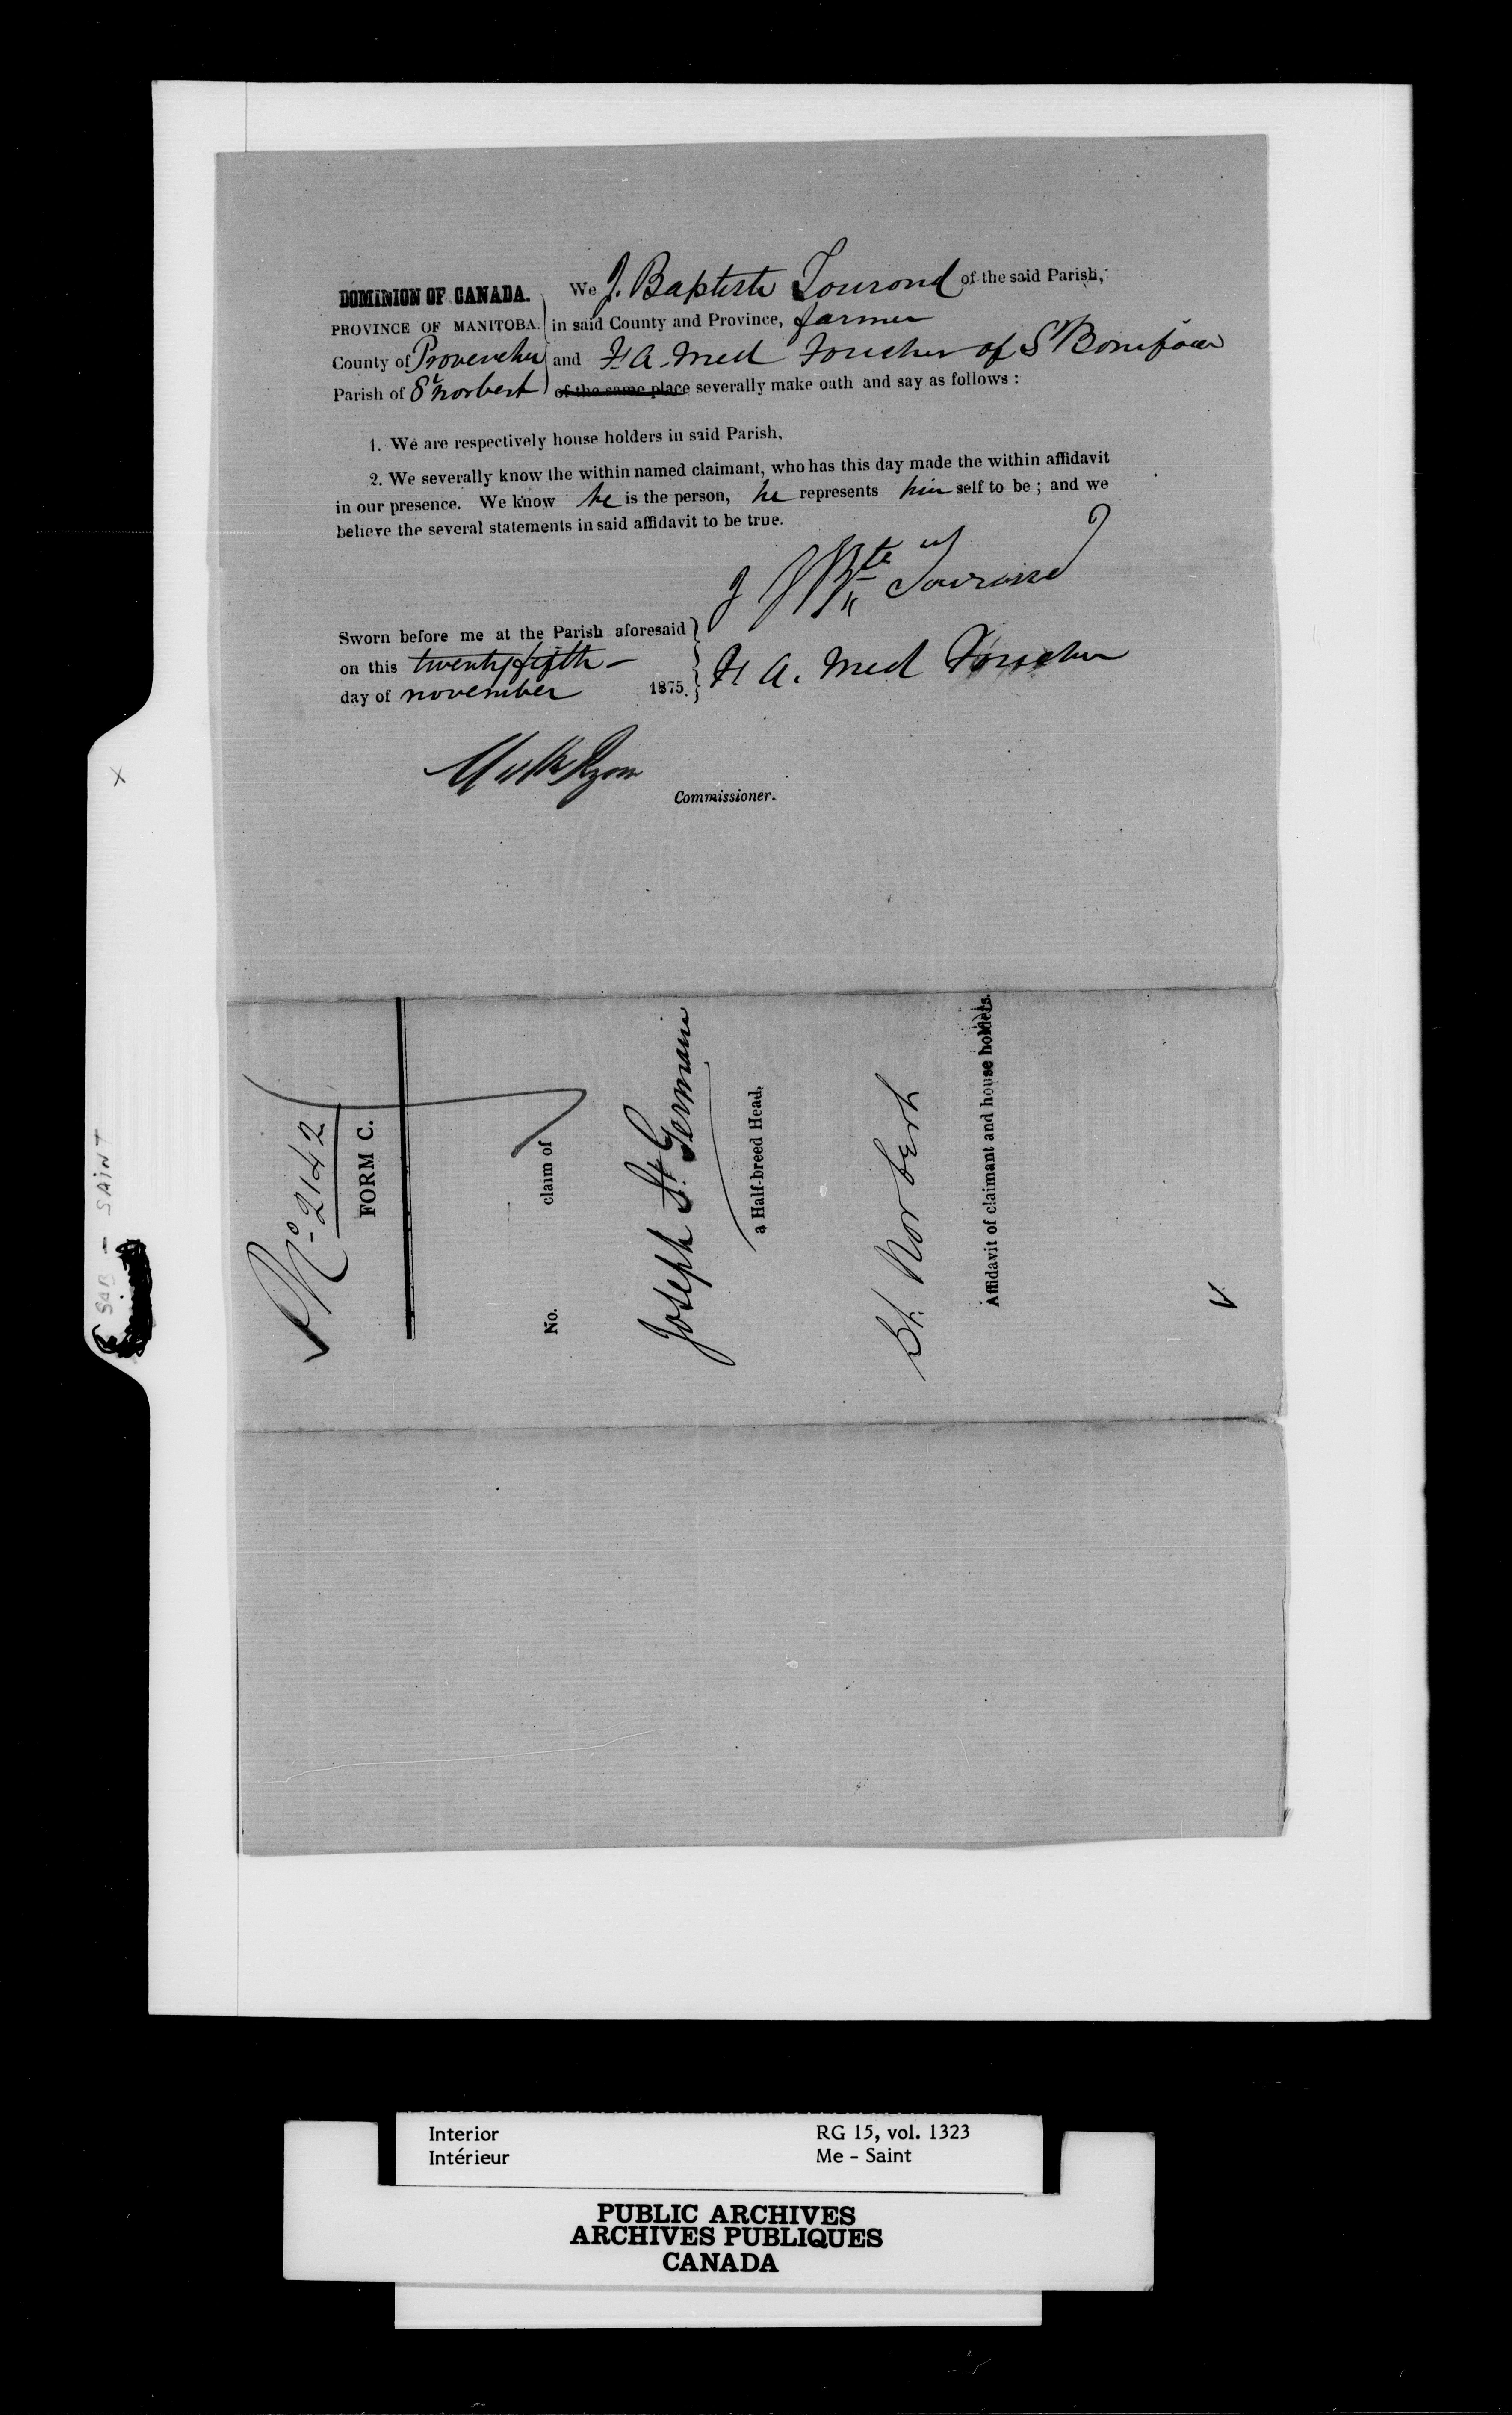 DOMINION OF CANADA.
PROVINCE OF MANITOBA.
County of Provencher
Parish of St Norbert
We J. Baptiste Tourond of the said Parish,
in said County and Province, farmer
and F. A. Med Foucher of St Boniface
of the same place severally make oath and say as follows :
1. We are respectively house holders in said Parish,
2. We severally know the within named claimant, who has this day made the within affidavit
in our presence. We know he is the person, he represents him self to be ; and we
believe the several statements in said affidavit to be true.
J Bte Tourond
Sworn before me at the Parish aforesaid
on this twenty fifth
day of november 1875.
F. A. Med Foucher
Commissioner.
No 2142
FORM C.
No. claim of
Joseph St. Germain
a Half-breed Head,
St. Norbert
Affidavit of claimant and house holders.
SAB - SAINT
Interior
Intérieur
RG 15, vol. 1323
Me - Saint
PUBLIC ARCHIVES
ARCHIVES PUBLIQUES
CANADA